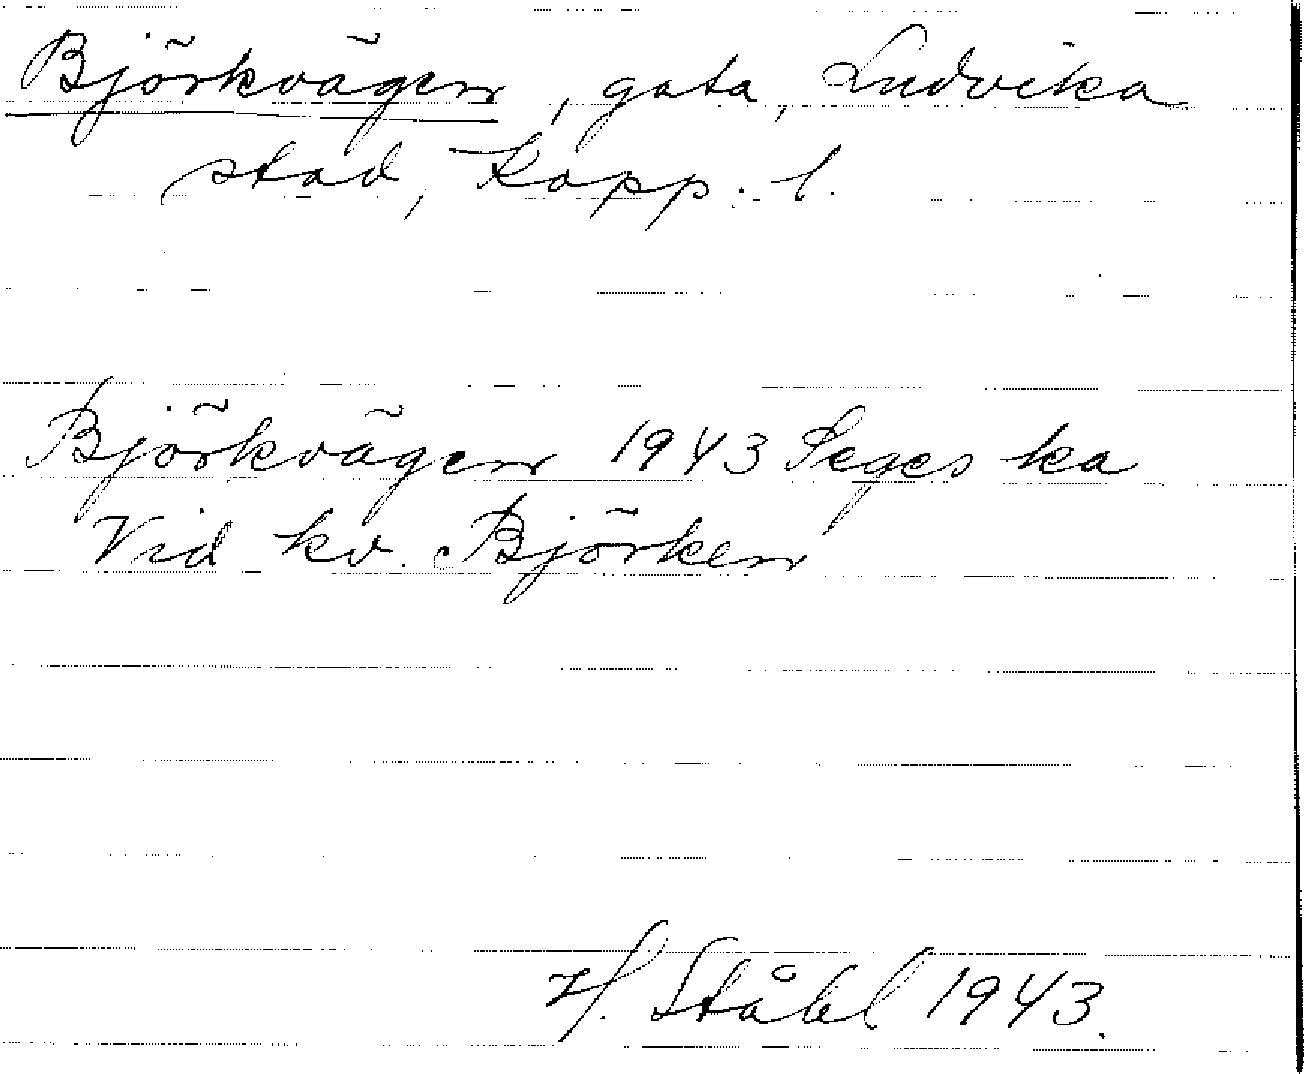 Björkvägen, gata, Ludvika
stad, Kopp. l.
Björkvägen 1943 Segeska
Vid kv. Björken
H. Ståhl 1943.